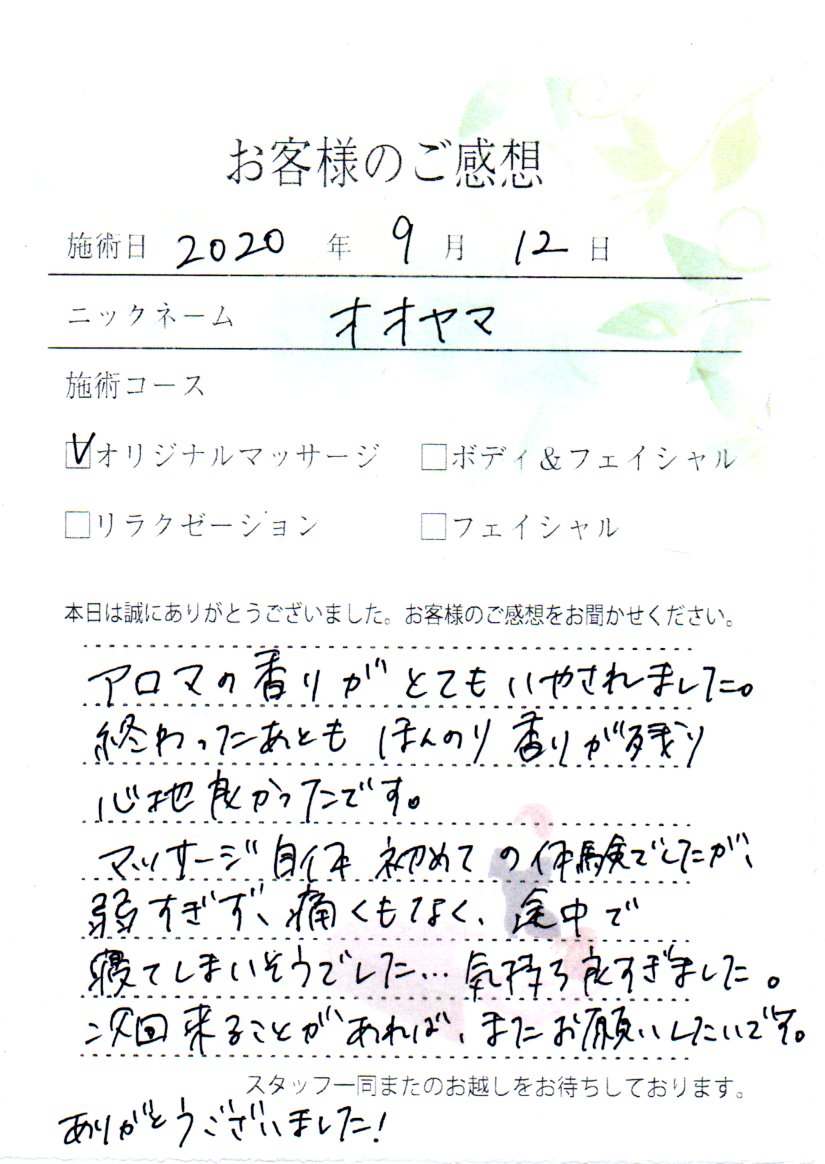 お客様のご感想
施術日 2020 年 9 月 12 日
ニックネーム オオヤマ
施術コース
☑オリジナルマッサージ □ボディ&フェイシャル
□リラクゼーション □フェイシャル
本日は誠にありがとうございました。お客様のご感想をお聞かせください。
アロマの香りがとてもいやされました。
終わったあとも ほんのり香りが残り
心地良かったです。
マッサージ自体初めての体験でしたが、
弱すぎず、痛くもなく、途中で
寝てしまいそうでした…気持ち良すぎました。
次回来ることがあれば、またお願いしたいです。
スタッフ一同またのお越しをお待ちしております。
ありがとうございました!